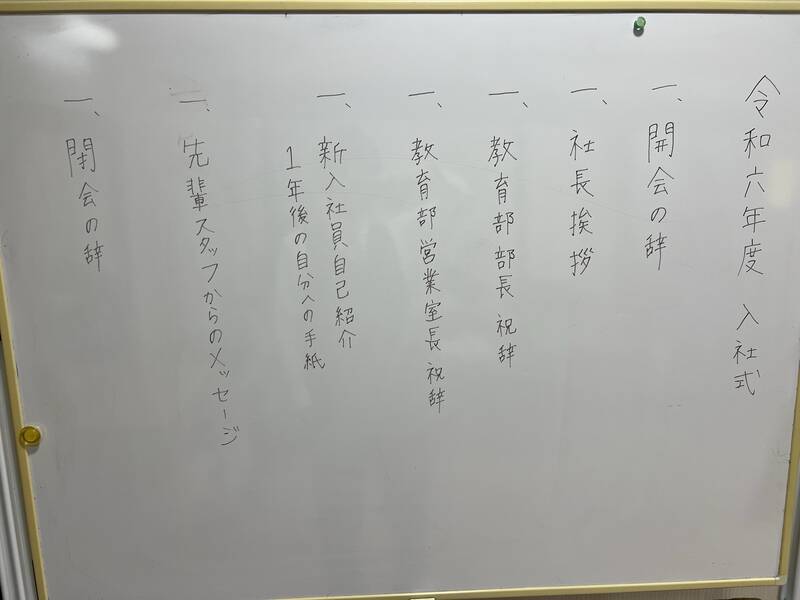 令和六年度 入社式
一、開会の辞
一、社長挨拶
一、教育部部長 祝辞
一、教育部営業室長 祝辞
一、新入社員自己紹介
1年後の自分への手紙
一、先輩スタッフからのメッセージ
一、閉会の辞